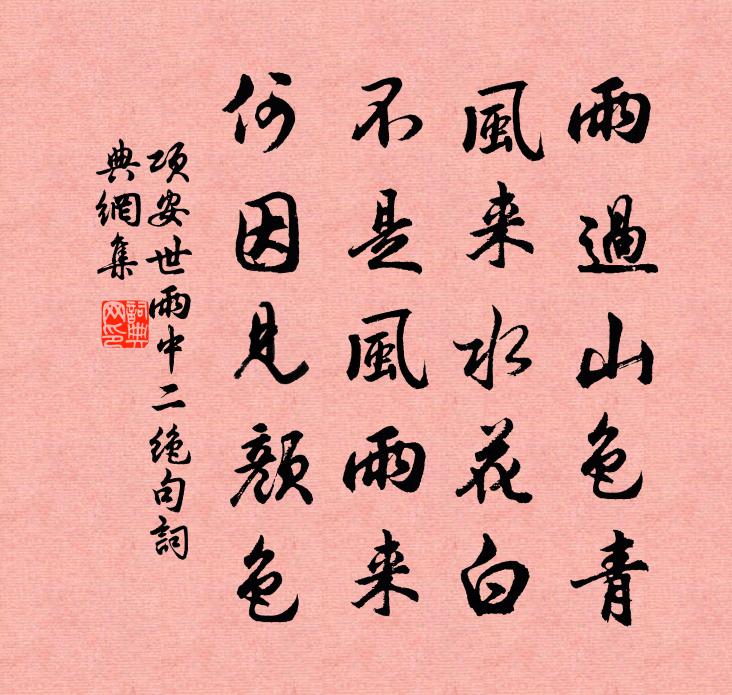 雨過山色青
風来水花白
不是風雨来
何因見顔色
項安世雨中二絶句詞
典網集
詞典
网印